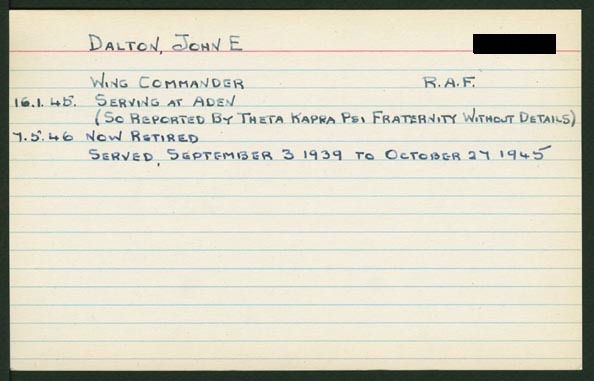 DALTON, JOHN E
WING COMMANDER R.A.F.
16.1.45. SERVING AT ADEN
(SO REPORTED BY THETA KAPRA PSI FRATERNITY WITHOUT DETAILS)
7.5.46 NOW RETIRED
SERVED, SEPTEMBER 3 1939 TO OCTOBER 27 1945